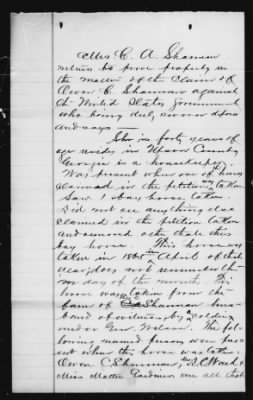 Mrs C. A. Shannan
witness to prove property in
the matter of the Claim of
Owen C Shannan against
the United States Government
who being duly sworn
and says —
She is forty years of
age resides in Upson County
Georgia is a housekeeper.
Was present when one of horses
claimed in the petition was taken.
Saw 1 bay horse taken
Did not see any thing else
claimed in the petition taken
and removed other than this
bay horse. This horse was
taken in 1865 in April of that
year; does not remember the
day of the month. This
horse was taken from the
farm of Shannan hus-
band of witness, by a soldier
under Gen. Wilson. The fol-
lowing named persons were pres-
ent when this horse was taken,
Owen C Shannan,
Miss Mattie Gardner are all that